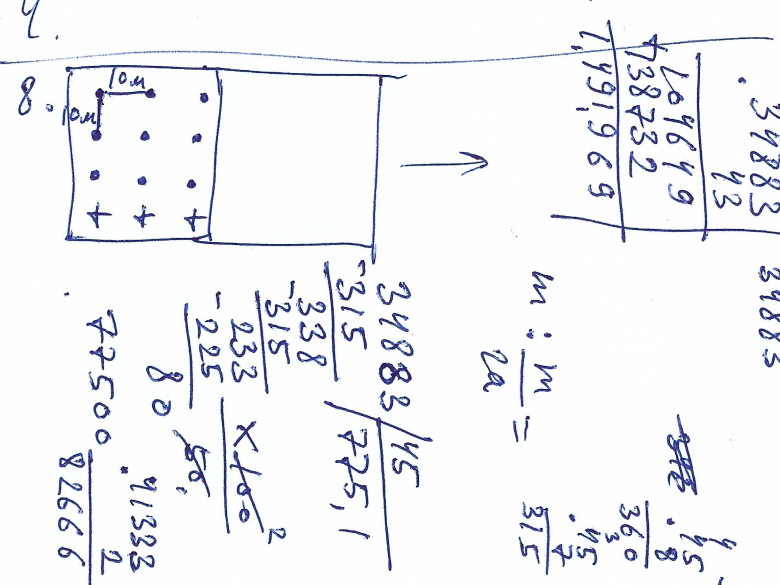 8.
10м
10м
. 34883
43
104649
+
38732
1,491,969
34883
m : m/2a =
34883 / 45
-315
775,1
338
-315
233
-225
80
×100
2
77500
. 41333
2
82666
. 45
8
360
. 45
7
3
315